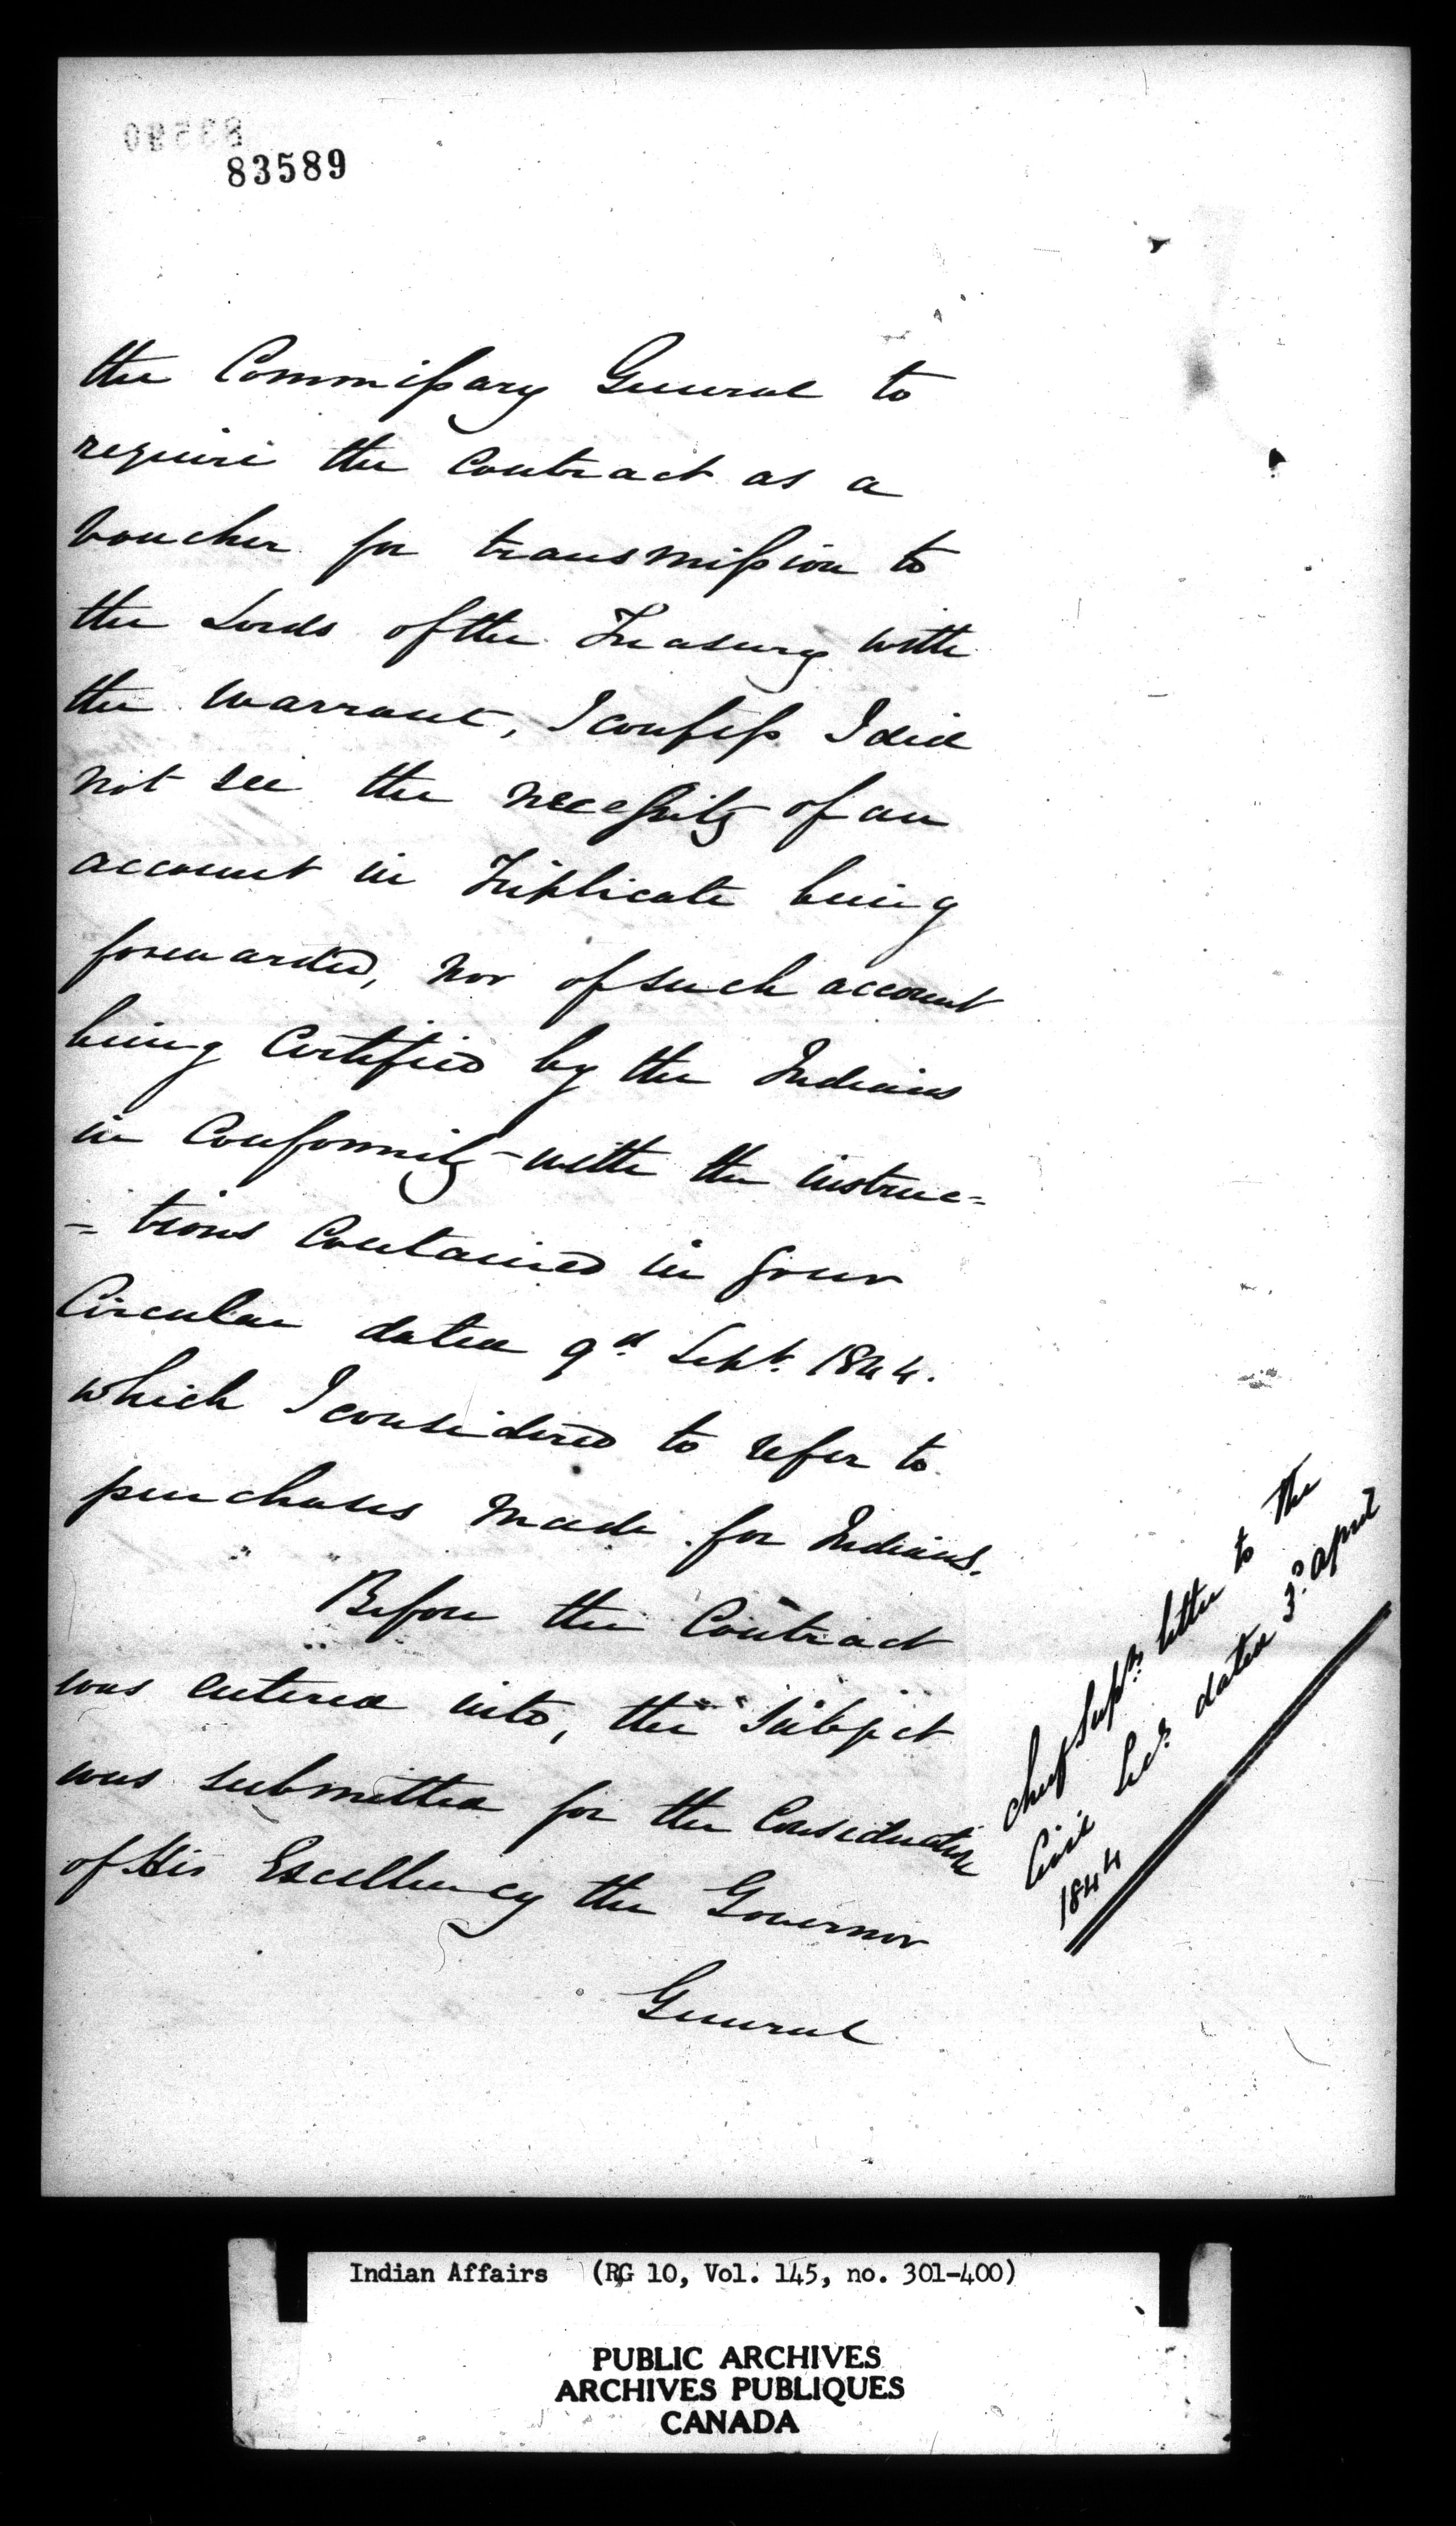 83589
the Commissary General to
require the Contract as a
voucher for transmission to
the Lords of the Treasury with
the Warrant, I confess I did
not see the necessity of an
account in Triplicate being
forwarded, nor of such account
being Certified by the Indians
in Conformity with the instruc=
=tions Contained in your
Circular dated 9th Sept. 1844.
which I considered to refer to
purchases made for Indians.
Before the Contract
was entered into, the Subject
was submitted for the Consideration
of His Excellency the Governor
General
Chief Supt. letter to the
Civil Sec. dated 3d. April
1844
Indian Affairs (RG 10, Vol. 145, no. 301-400)
PUBLIC ARCHIVES
ARCHIVES PUBLIQUES
CANADA